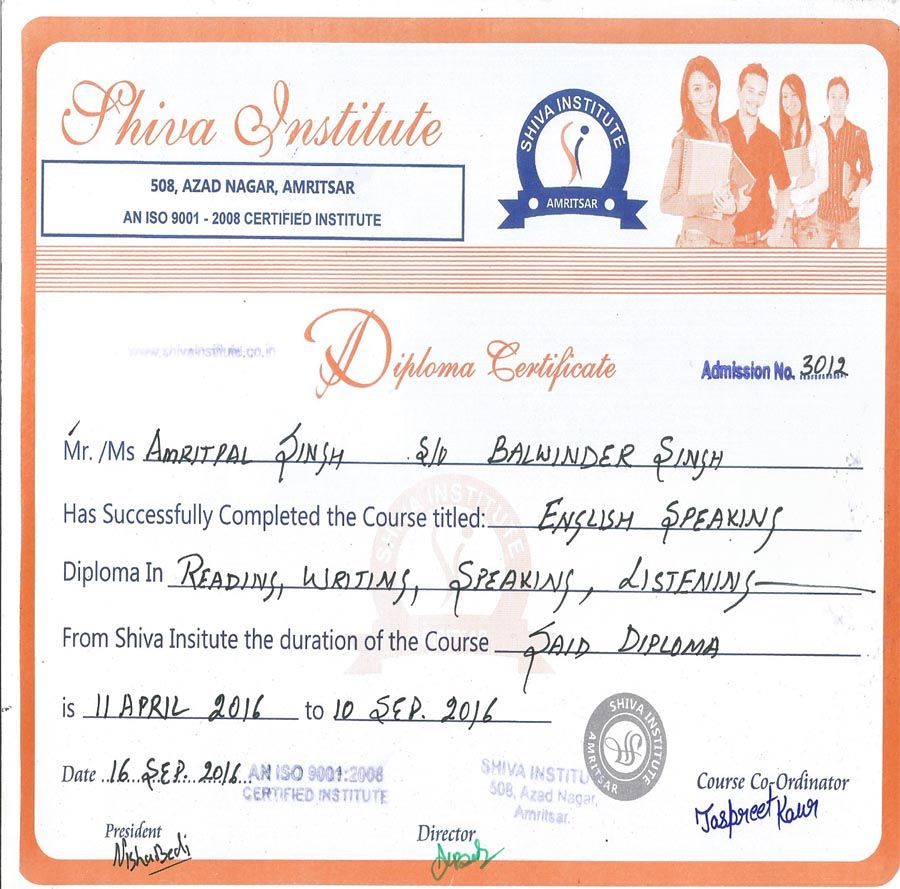 Shiva Institute
508, AZAD NAGAR, AMRITSAR
AN ISO 9001 - 2008 CERTIFIED INSTITUTE
SHIVA INSTITUTE
AMRITSAR
Diploma Certificate
www.shivainstitute.co.in
Admission No. 3012
Mr. /Ms AMRITPAL SINGH S/O BALWINDER SINGH
Has Successfully Completed the Course titled: ENGLISH SPEAKING
Diploma In READING, WRITING, SPEAKING, LISTENING
From Shiva Insitute the duration of the Course SAID DIPLOMA
is 11 APRIL 2016 to 10 SEP. 2016
SHIVA INSTITUTE
Date 16 SEP. 2016
AN ISO 9001:2008
CERTIFIED INSTITUTE
SHIVA INSTITU
508, Azad Nagar,
Amritsar.
SHIVA INSTITUTE
AMRITSAR
Course Co-Ordinator
Jaspreet Kaur
President
Nisha Bedi
Director